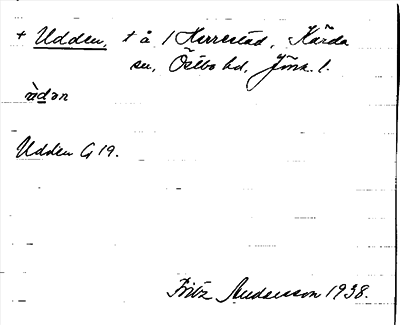 + Udden, t å 1 Herrestad, Kärda
sn, Östbo hd, Jönk. l.
Udden G 19.
Fritz Andersson 1938.